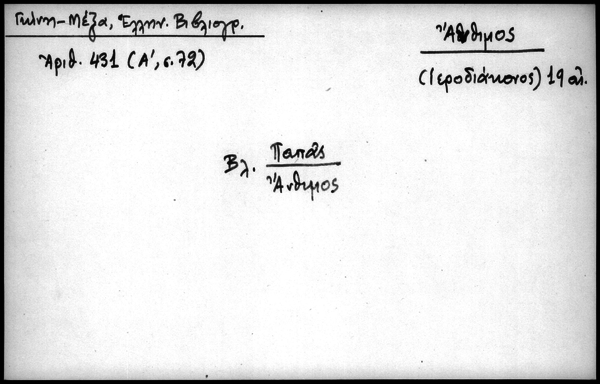 Γκίνη-Μέξα, Ἑλλην. Βιβλιογρ.
Ἀριθ. 431 (Α', σ. 72)
Ἄνθιμος
(Ἱεροδιάκονος) 19 αἰ.
Βλ. Παπᾶς
Ἄνθιμος